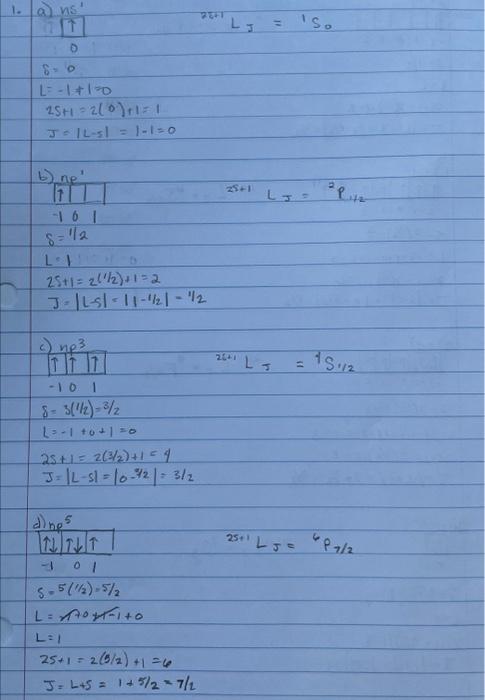 1. a) ns¹
↑ 2S+1 L J = ¹S₀
0
S = 0
L = -1 + 1 = 0
2S+1 = 2(0)+1 = 1
J = |L-S| = 1-1 = 0
b) np¹
↑ 2S+1 L J = ²P 1/2
-1 0 1
S = 1/2
L = 1
2S+1 = 2(1/2)+1 = 2
J = |L-S| = |1-1/2| = 1/2
c) np3
↑ ↑ ↑ 2S+1 L J = ⁴S 1/2
-1 0 1
S = 3(1/2) = 3/2
L = -1 + 0 + 1 = 0
2S+1 = 2(3/2)+1 = 4
J = |L-S| = |0-3/2| = 3/2
d) np5
↑↓ ↑↓ ↑ 2S+1 L J = ⁶P 7/2
-1 0 1
S = 5(1/2) = 5/2
L = +0 -1+0
L = 1
2S+1 = 2(5/2)+1 = 6
J = L+S = 1+5/2 = 7/2